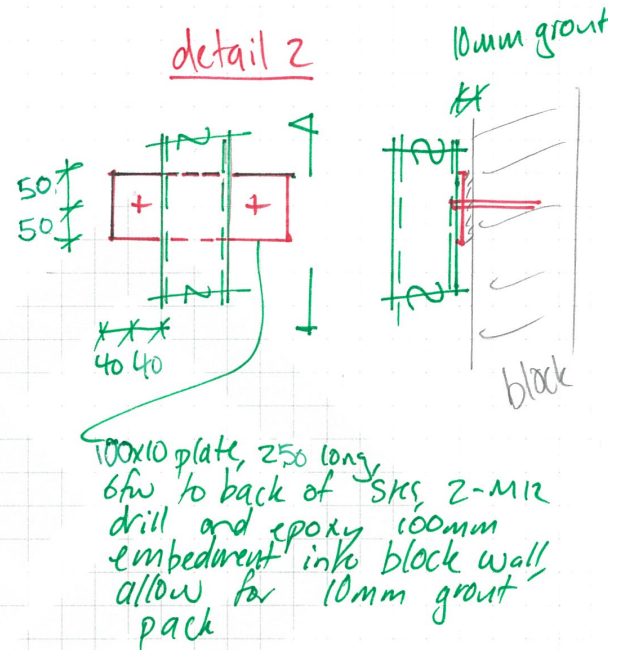 detail 2
10mm grout
50
50
40 40
block
100x10 plate, 250 long,
6fw to back of SHS, 2-M12
drill and epoxy 100mm
embedment into block wall,
allow for 10mm grout
pack